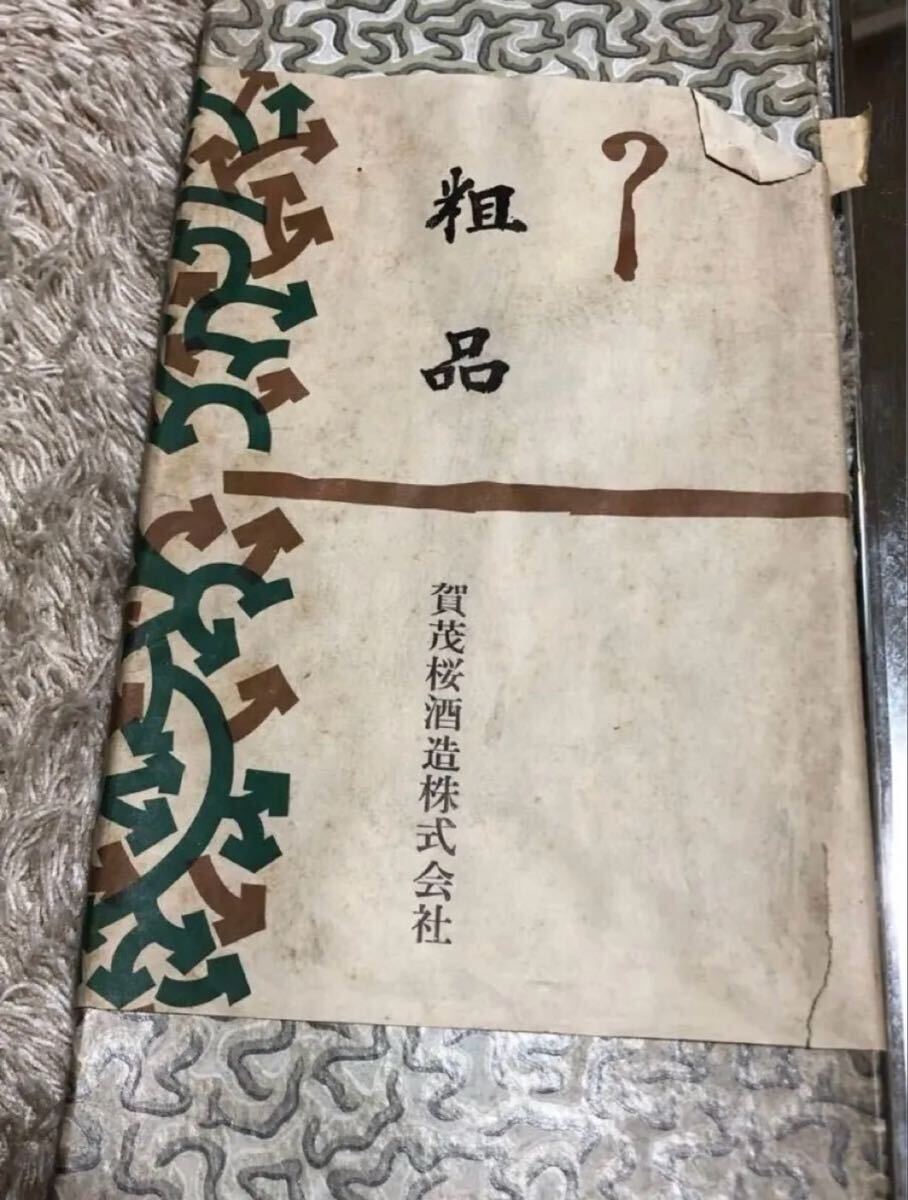 粗品
賀茂桜酒造株式会社